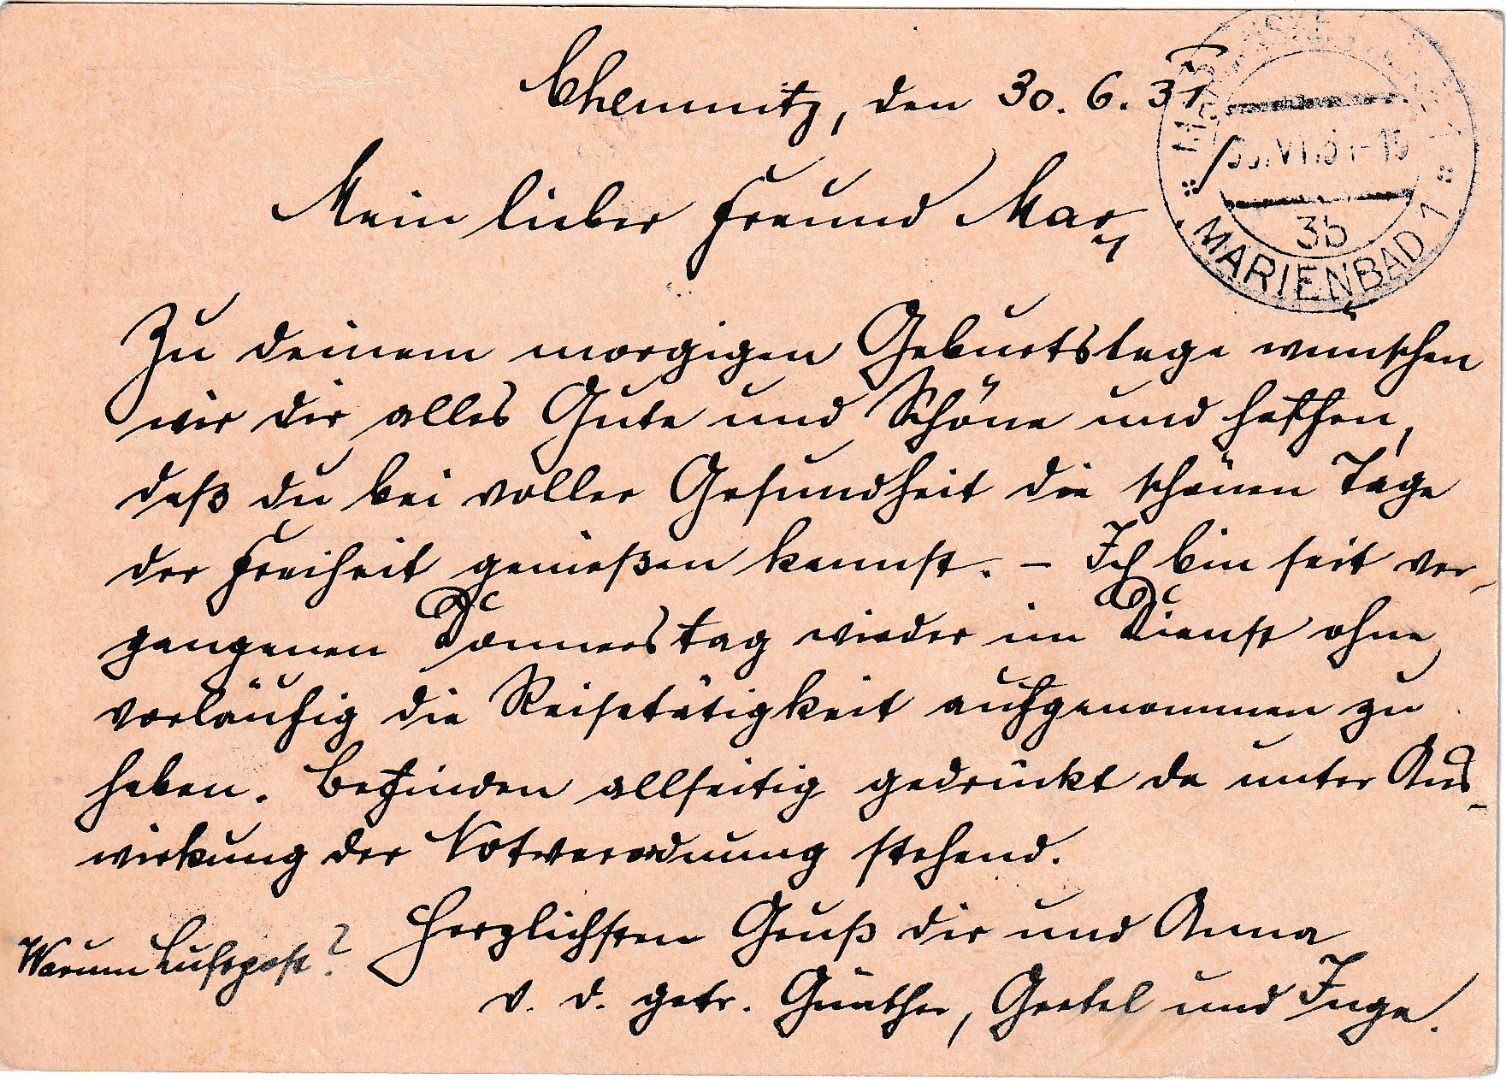 Chemnitz, den 30. 6. 31
Mein lieber Freund Max
Zu deinem morgigen Geburtstage wünschen
wir dir alles Gute und Schöne und hoffen,
daß du bei voller Gesundheit die schönen Tage
der Freiheit genießen kannst. – Ich bin seit ver-
gangenen Donnerstag wieder im Dienst ohne
vorläufig die Reisetätigkeit aufgenommen zu
haben. Befinden allseitig gedrückt da unter Aus-
wirkung der Notverordnung stehend.
Herzlichsten Gruß dir und Anna
v. d. getr. Günther, Gretel und Inge.
Warum Luftpost?
VI.31-15
3b
MARIENBAD 1